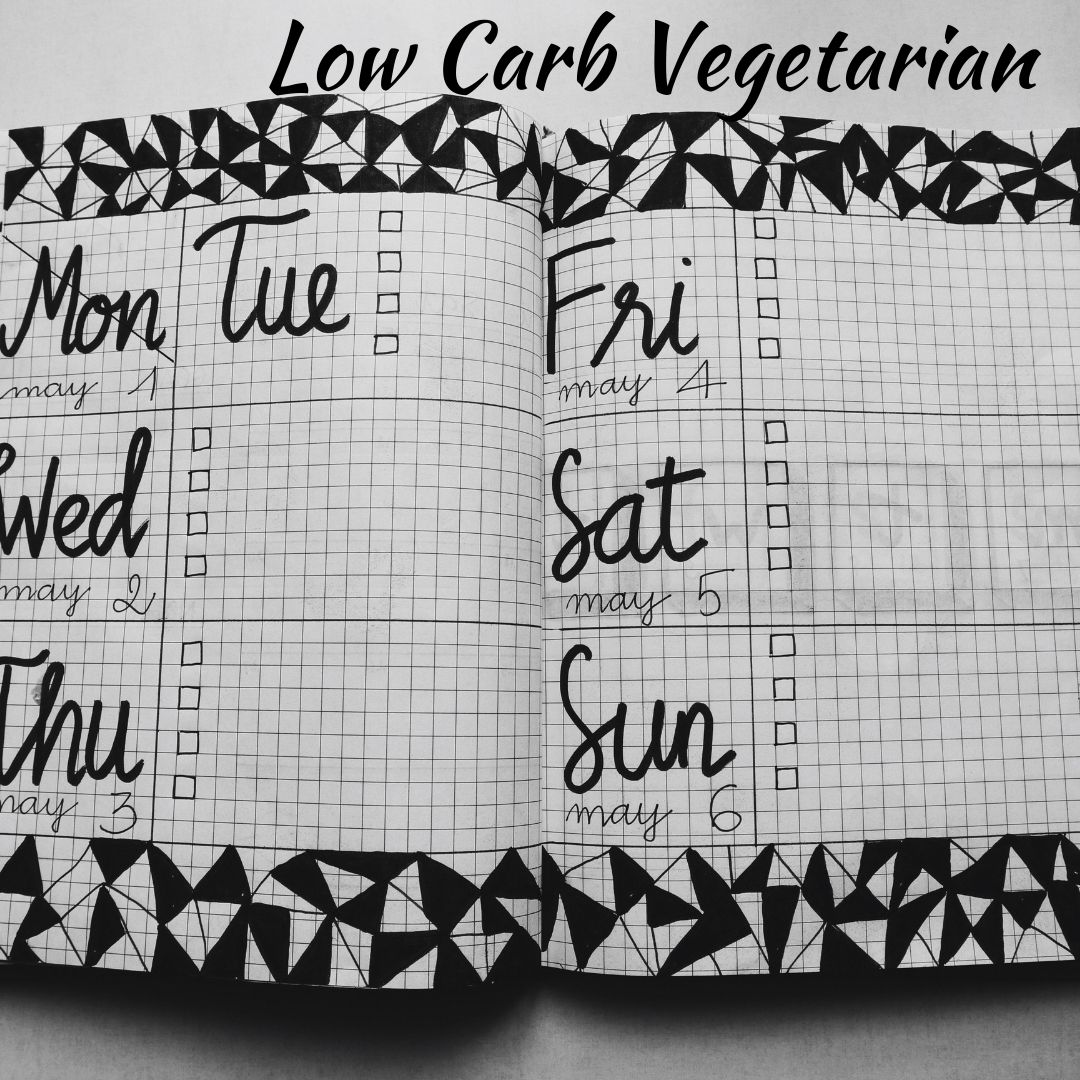 Low Carb Vegetarian
Mon Tue
may 1
Wed
may 2
Thu
may 3
Fri
may 4
Sat
may 5
Sun
may 6